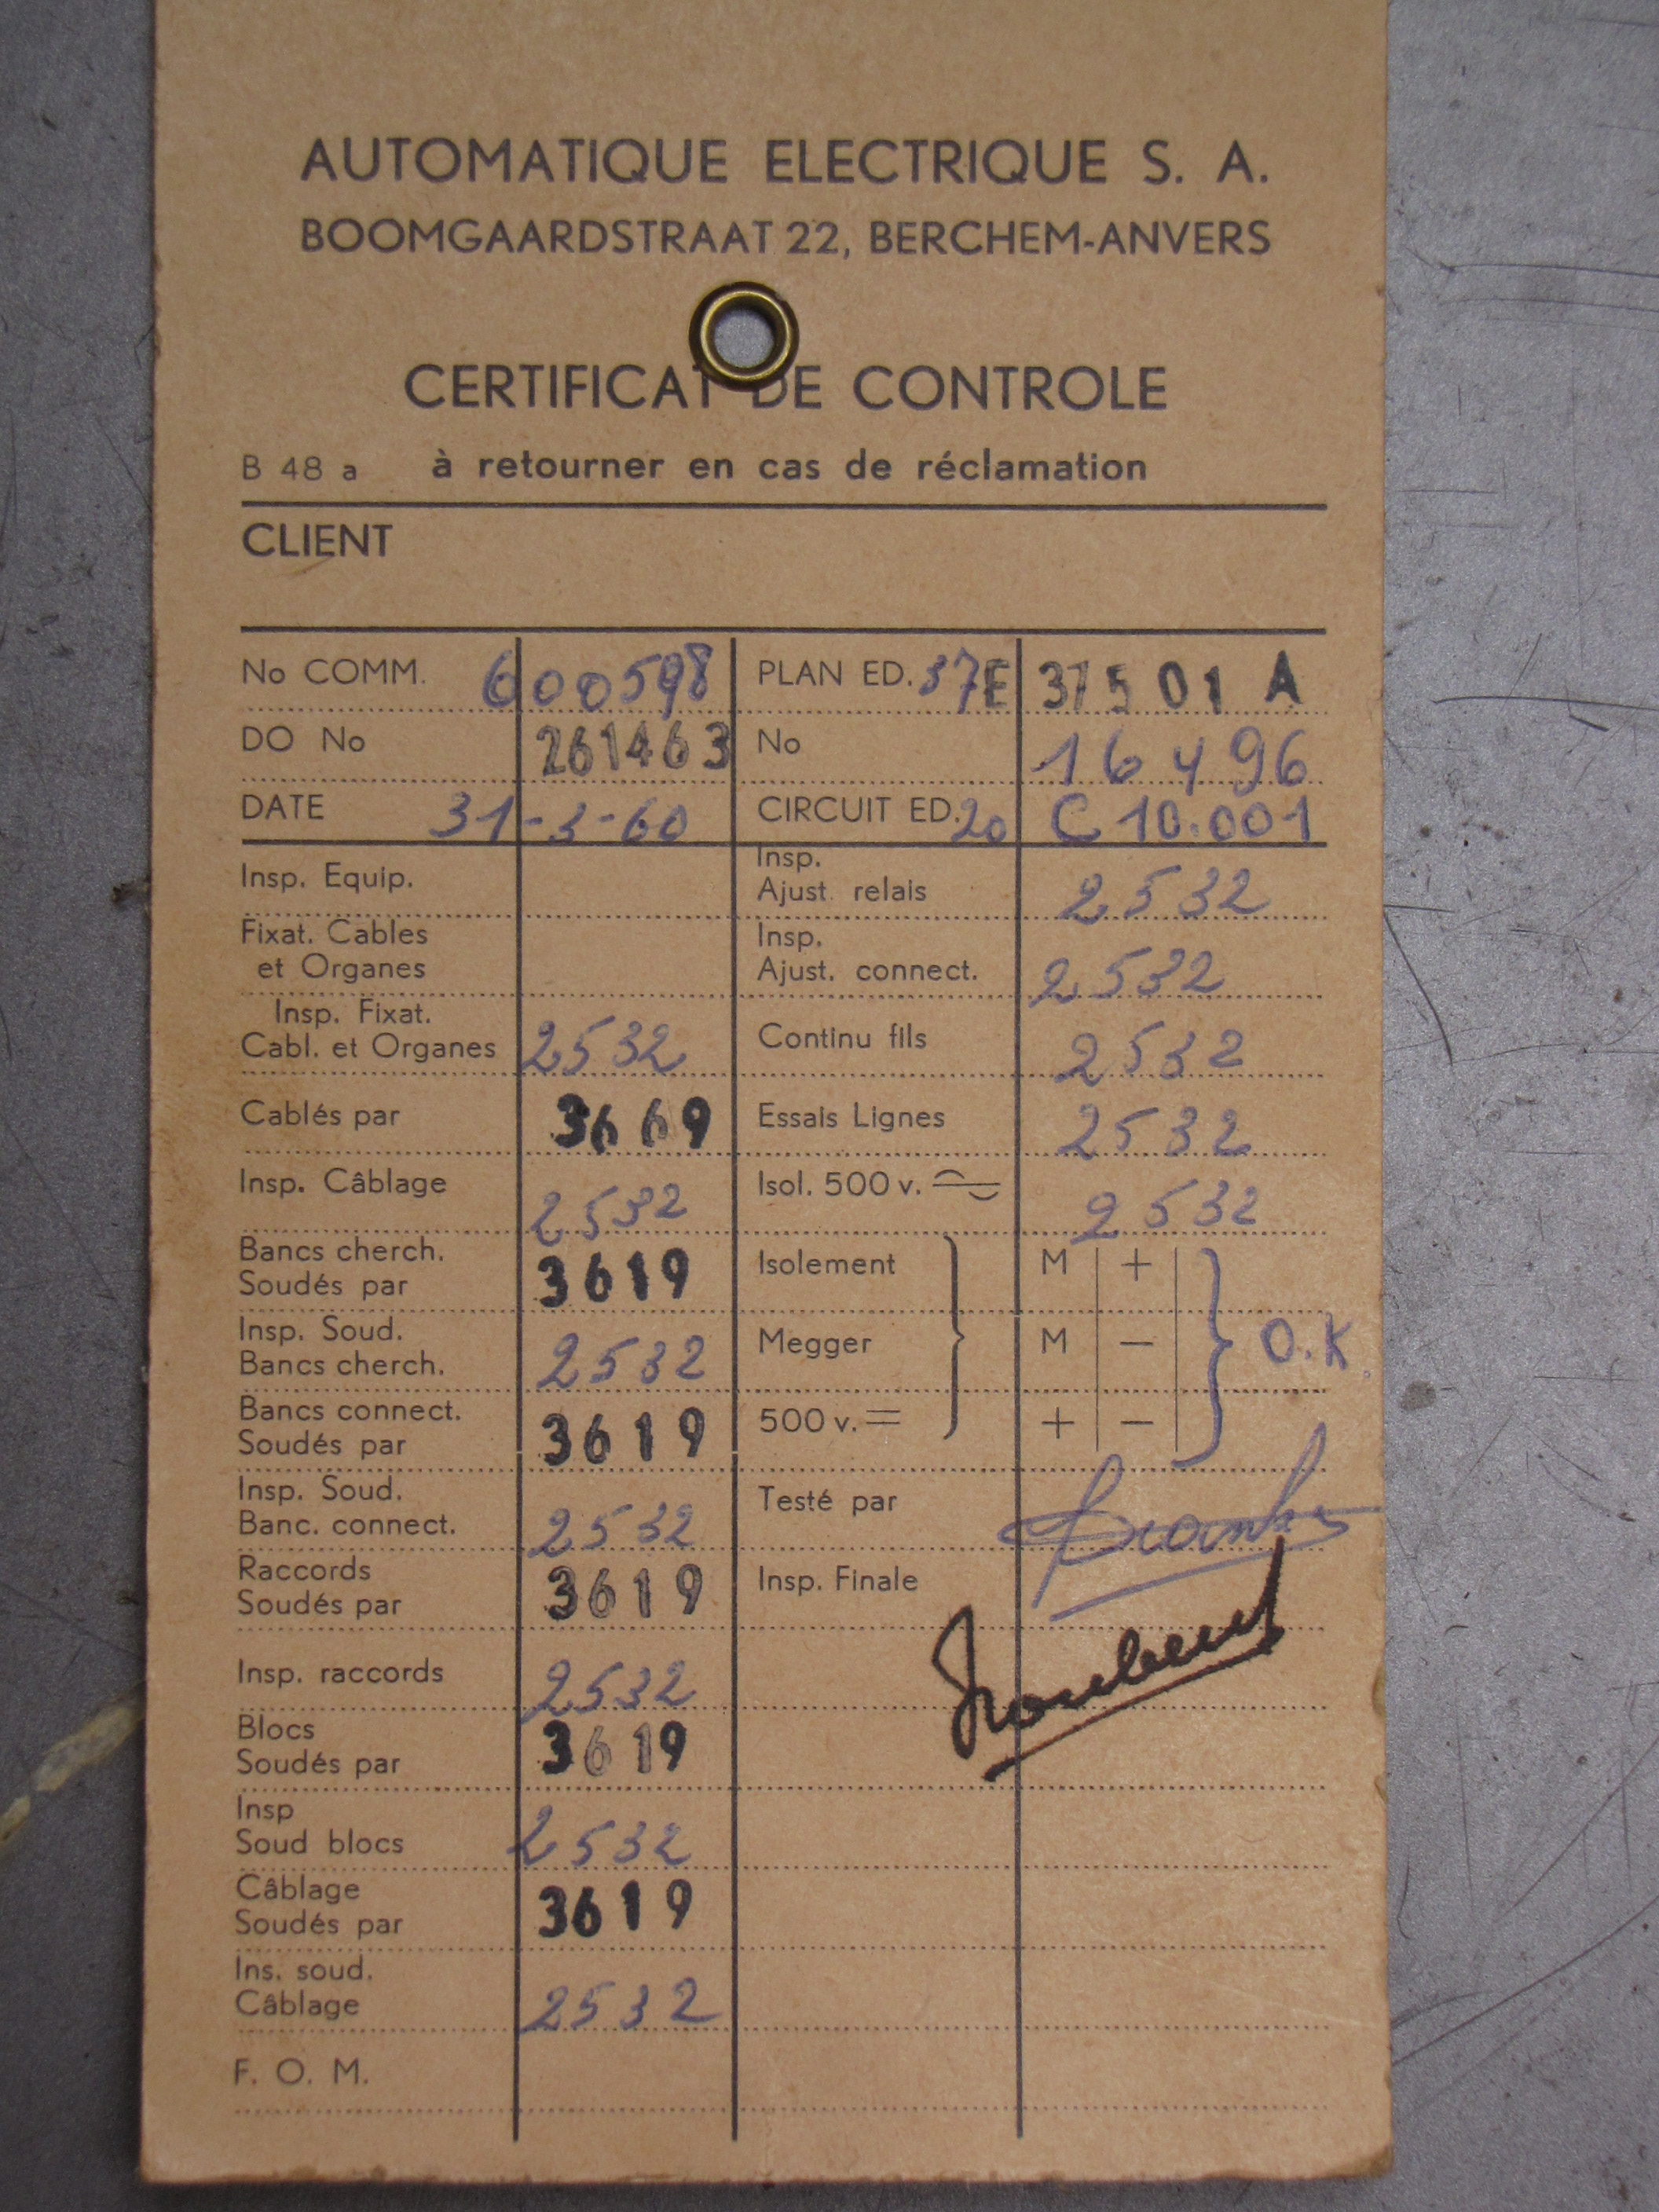 AUTOMATIQUE ELECTRIQUE S. A.
BOOMGAARDSTRAAT 22, BERCHEM-ANVERS
CERTIFICAT DE CONTROLE
B 48 a à retourner en cas de réclamation
CLIENT
No COMM. 600598 PLAN ED. 37E 37501 A
DO No 261463 No 16496
DATE 31-3-60 CIRCUIT ED. 20 C 10.001
Insp. Equip.
Insp.
Ajust. relais 2532
Fixat. Cables
et Organes
Insp.
Ajust. connect. 2532
Insp. Fixat.
Cabl. et Organes 2532
Continu fils 2532
Cablés par 3669
Essais Lignes 2532
Insp. Câblage 2532
Isol. 500 v. 2532
Bancs cherch.
Soudés par 3619
Isolement M +
Insp. Soud.
Bancs cherch. 2532
Megger M — O.K.
Bancs connect.
Soudés par 3619
500 v. = + —
Insp. Soud.
Banc. connect. 2532
Testé par
Raccords
Soudés par 3619
Insp. Finale
Insp. raccords 2532
Blocs
Soudés par 3619
Insp
Soud blocs 2532
Câblage
Soudés par 3619
Ins. soud.
Câblage 2532
F. O. M.